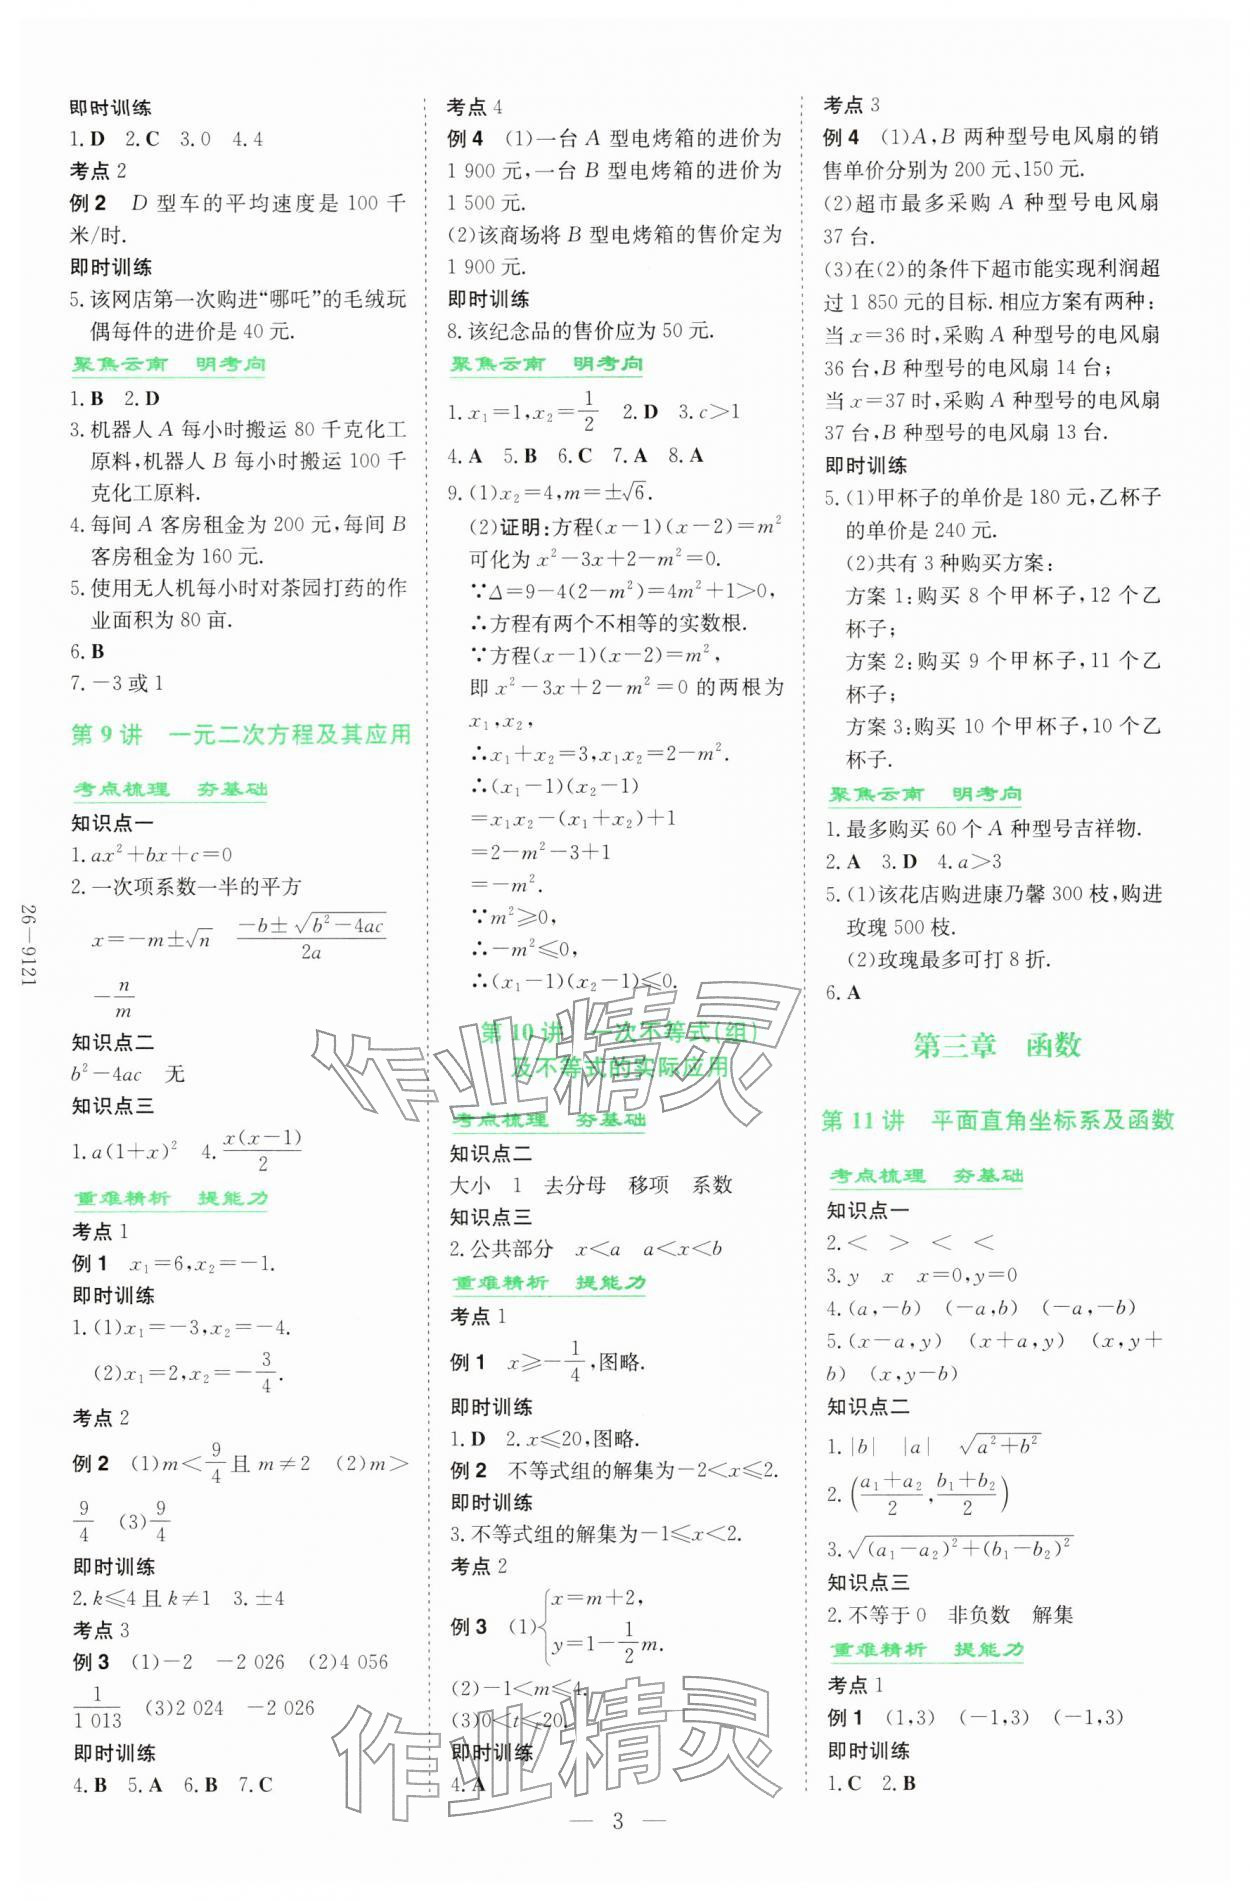 即时训练
1. D 2. C 3. 0 4. 4
考点 2
例 2 D 型车的平均速度是 100 千
米/时.
即时训练
5. 该网店第一次购进“哪吒”的毛绒玩
偶每件的进价是 40 元.
聚焦云南 明考向
1. B 2. D
3. 机器人 A 每小时搬运 80 千克化工
原料,机器人 B 每小时搬运 100 千
克化工原料.
4. 每间 A 客房租金为 200 元,每间 B
客房租金为 160 元.
5. 使用无人机每小时对茶园打药的作
业面积为 80 亩.
6. B
7. －3 或 1
第 9 讲 一元二次方程及其应用
考点梳理 夯基础
知识点一
1. ax²＋bx＋c＝0
2. 一次项系数一半的平方
x＝－m±√n (－b±√(b²－4ac))/2a
－n/m
知识点二
b²－4ac 无
知识点三
1. a(1＋x)² 4. x(x－1)/2
重难精析 提能力
考点 1
例 1 x₁＝6,x₂＝－1.
即时训练
1. (1)x₁＝－3,x₂＝－4.
(2)x₁＝2,x₂＝－3/4.
考点 2
例 2 (1)m＜9/4且 m≠2 (2)m＞
9/4 (3)9/4
即时训练
2. k≤4 且 k≠1 3. ±4
考点 3
例 3 (1)－2 －2 026 (2)4 056
1/1 013 (3)2 024 －2 026
即时训练
4. B 5. A 6. B 7. C
26－9121
考点 4
例 4 (1)一台 A 型电烤箱的进价为
1 900 元,一台 B 型电烤箱的进价为
1 500 元.
(2)该商场将 B 型电烤箱的售价定为
1 900 元.
即时训练
8. 该纪念品的售价应为 50 元.
聚焦云南 明考向
1. x₁＝1,x₂＝1/2 2. D 3. c＞1
4. A 5. B 6. C 7. A 8. A
9. (1)x₂＝4,m＝±√6.
(2)证明:方程(x－1)(x－2)＝m²
可化为 x²－3x＋2－m²＝0.
∵Δ＝9－4(2－m²)＝4m²＋1＞0,
∴方程有两个不相等的实数根.
∵方程(x－1)(x－2)＝m²,
即 x²－3x＋2－m²＝0 的两根为
x₁,x₂,
∴x₁＋x₂＝3,x₁x₂＝2－m².
∴(x₁－1)(x₂－1)
＝x₁x₂－(x₁＋x₂)＋1
＝2－m²－3＋1
＝－m².
∵m²≥0,
∴－m²≤0,
∴(x₁－1)(x₂－1)≤0.
第 10 讲 一次不等式(组)
及不等式的实际应用
考点梳理 夯基础
知识点二
大小 1 去分母 移项 系数
知识点三
2. 公共部分 x＜a a＜x＜b
重难精析 提能力
考点 1
例 1 x≥－1/4,图略.
即时训练
1. D 2. x≤20,图略.
例 2 不等式组的解集为－2＜x≤2.
即时训练
3. 不等式组的解集为－1≤x＜2.
考点 2
例 3 (1){x＝m＋2,
y＝1－1/2m.
(2)－1＜m≤4.
(3)0＜t≤20.
即时训练
4. A
考点 3
例 4 (1)A,B 两种型号电风扇的销
售单价分别为 200 元、150 元.
(2)超市最多采购 A 种型号电风扇
37 台.
(3)在(2)的条件下超市能实现利润超
过 1 850 元的目标. 相应方案有两种:
当 x＝36 时,采购 A 种型号的电风扇
36 台,B 种型号的电风扇 14 台;
当 x＝37 时,采购 A 种型号的电风扇
37 台,B 种型号的电风扇 13 台.
即时训练
5. (1)甲杯子的单价是 180 元,乙杯子
的单价是 240 元.
(2)共有 3 种购买方案:
方案 1:购买 8 个甲杯子,12 个乙
杯子;
方案 2:购买 9 个甲杯子,11 个乙
杯子;
方案 3:购买 10 个甲杯子,10 个乙
杯子.
聚焦云南 明考向
1. 最多购买 60 个 A 种型号吉祥物.
2. A 3. D 4. a＞3
5. (1)该花店购进康乃馨 300 枝,购进
玫瑰 500 枝.
(2)玫瑰最多可打 8 折.
6. A
第三章 函数
第 11 讲 平面直角坐标系及函数
考点梳理 夯基础
知识点一
2. ＜ ＞ ＜ ＜
3. y x x＝0,y＝0
4. (a,－b) (－a,b) (－a,－b)
5. (x－a,y) (x＋a,y) (x,y＋
b) (x,y－b)
知识点二
1. |b| |a| √(a²＋b²)
2. ((a₁＋a₂)/2,(b₁＋b₂)/2)
3. √((a₁－a₂)²＋(b₁－b₂)²)
知识点三
2. 不等于 0 非负数 解集
重难精析 提能力
考点 1
例 1 (1,3) (－1,3) (－1,3)
即时训练
1. C 2. B
作业精灵
作业精灵
— 3 —